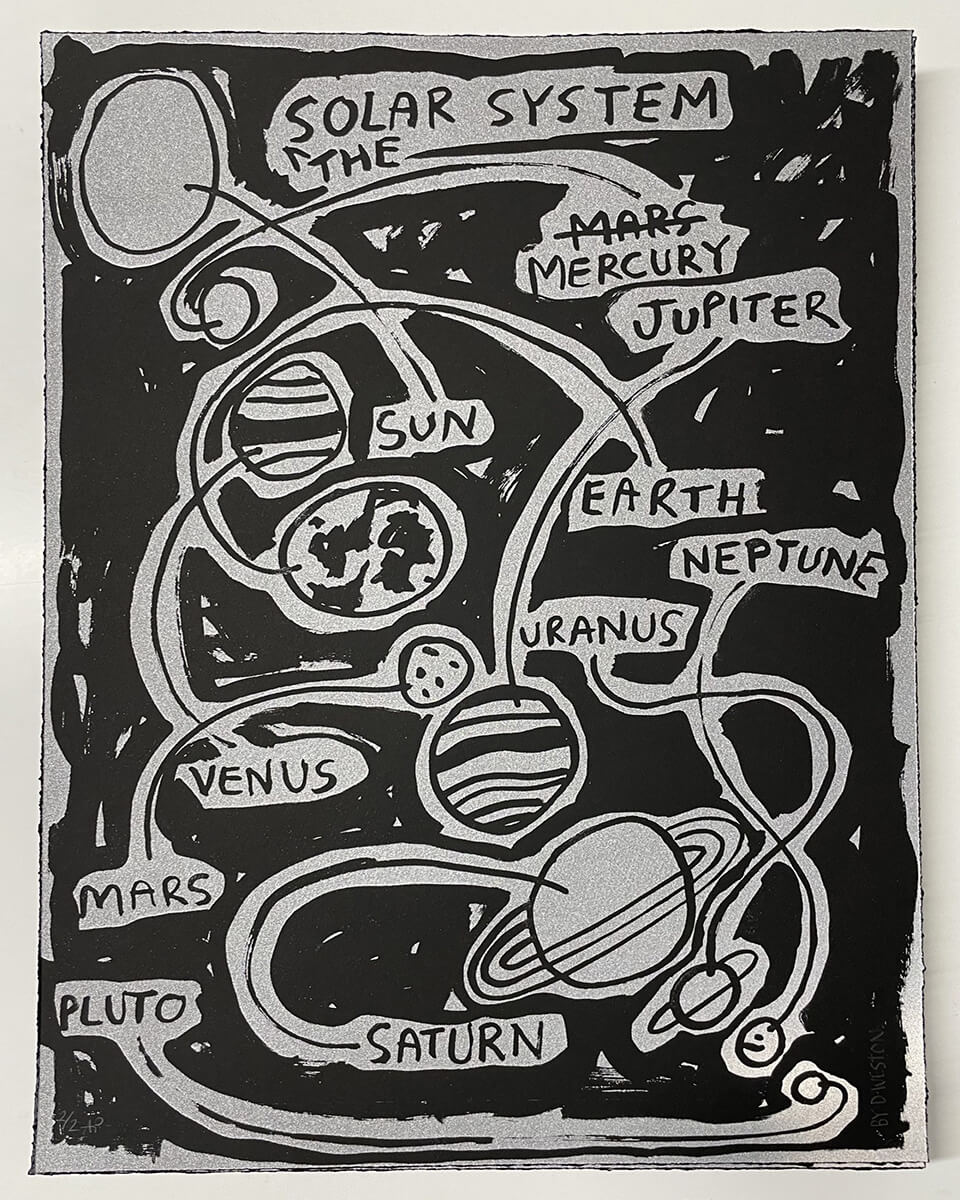 SOLAR SYSTEM
THE
MARS
MERCURY
JUPITER
SUN
EARTH
NEPTUNE
URANUS
VENUS
MARS
PLUTO
SATURN
2/2 AP
BY DIVISION